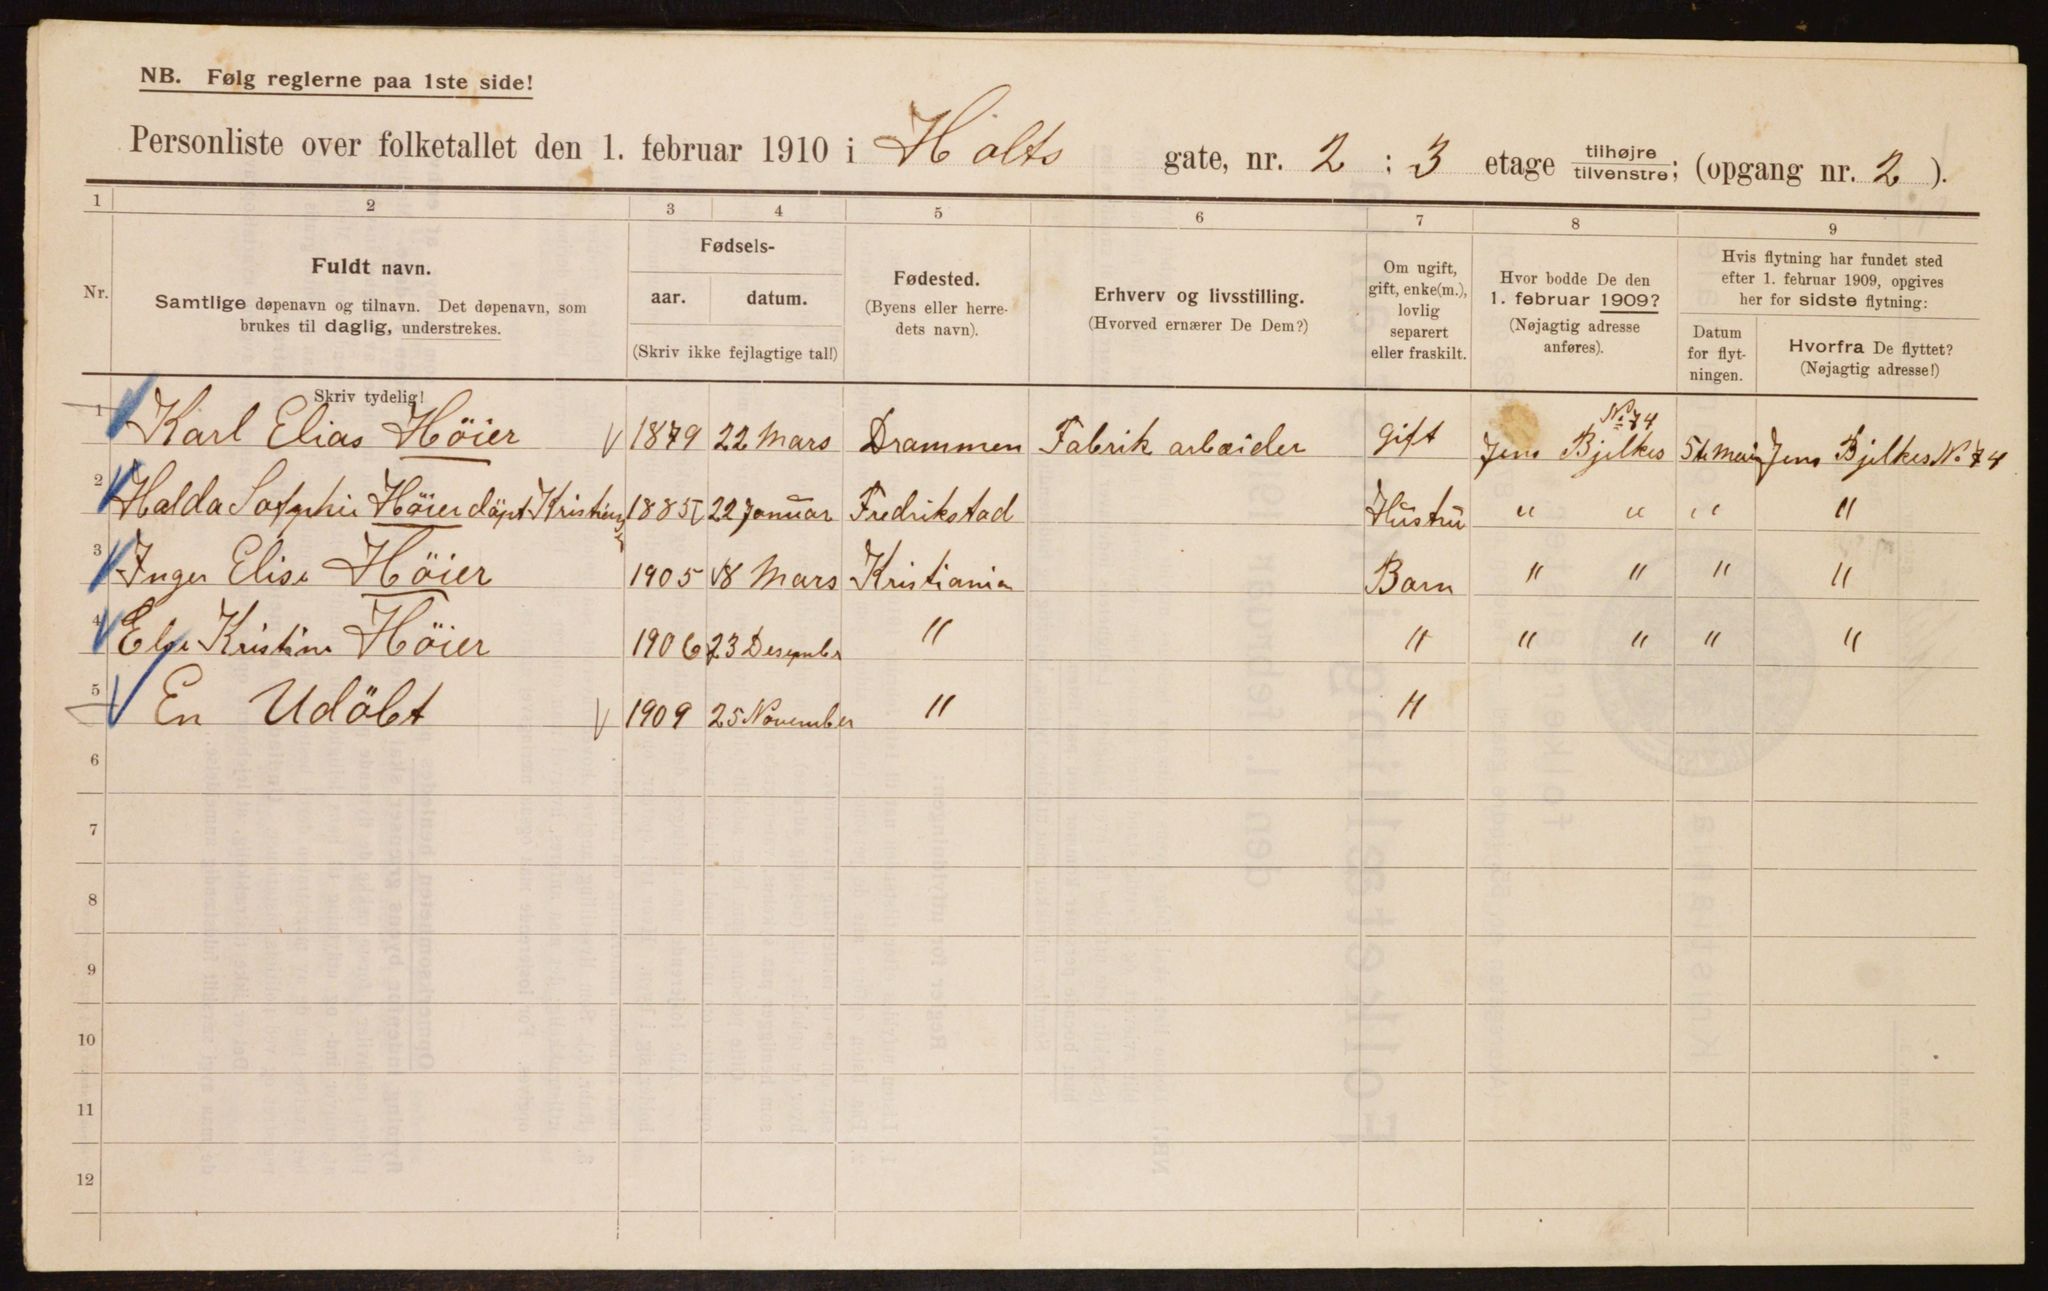 NB. Følg reglerne paa 1ste side!
Personliste over folketallet den 1. februar 1910 i Holts gate, nr. 2 ; 3 etage tilhøjre tilvenstre; (opgang nr. 2 ).
1 2 3 4 5 6 7 8 9
Nr.
Fuldt navn.
Samtlige døpenavn og tilnavn. Det døpenavn, som
brukes til daglig, understrekes.
Fødsels-
aar. datum.
(Skriv ikke fejlagtige tal!)
Fødested.
(Byens eller herre-
dets navn).
Erhverv og livsstilling.
(Hvorved ernærer De Dem?)
Om ugift,
gift, enke(m.),
lovlig
separert
eller fraskilt.
Hvor bodde De den
1. februar 1909?
(Nøjagtig adresse
anføres).
Hvis flytning har fundet sted
efter 1. februar 1909, opgives
her for sidste flytning:
Datum
for flyt-
ningen.
Hvorfra De flyttet?
(Nøjagtig adresse!)
Skriv tydelig!
1 Karl Elias Höier 1879 22 Mars Drammen Fabrik arbeider gift Jens Bjelkes No 74 5te Mai Jens Bjelkes No 74
2 Halda Sofie Höier döpt 1885 22 Januar Fredrikstad Hustru " " " "
3 Inger Elise Höier 1905 18 Mars Kristiania Barn " " " "
4 Else Kristine Höier 1906 23 Desember " " " " " "
5 En Udöbt 1909 25 November " "
6
7
8
9
10
11
12